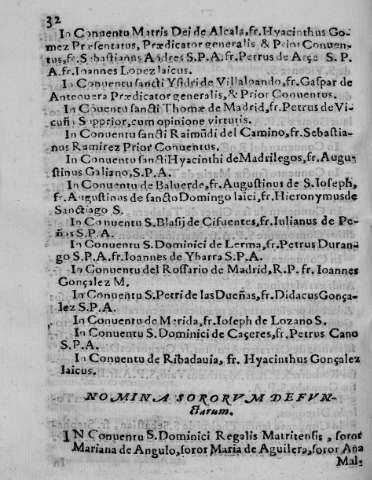 32
In Conuentu Matris Dei de Alcala, fr. Hyacinthus Go-
mez Præsentatus, Prædicator generalis, & Prior Conuen-
tus, fr. Sebastianus Andres S.P.A. fr. Petrus de Arçe S. P.
A. fr. Ioannes Lopez laicus.
In Conuentu sancti Ysidri de Villalpando, fr. Gaspar de
Antequera Prædicator generalis, & Prior Conuentus.
In Cõuentu sancti Thomæ de Madrid, fr. Petrus de Vi-
cuñi Supprior, cum opinione virtutis.
In Conuentu sancti Raimũdi del Camino, fr. Sebastia-
nus Ramirez Prior Conuentus.
In Conuentu sancti Hyacinthi de Madrilegos, fr. Augus
stinus Galiano, S.P.A.
In Conuentu de Baluerde, fr. Augustinus de S. Ioseph,
fr. Augustinus de sancto Domingo laici, fr. Hieronymus de
Sanctiago S.
In Conuentu S. Blasij de Cifuentes, fr. Iulianus de Pe-
ñas S.P.A.
In Conuentu S. Dominici de Lerma, fr. Petrus Duran-
go S.P.A. fr. Ioannes de Ybarra S.P.A.
In Conuentu del Rossario de Madrid, R.P. fr. Ioannes
Gonçalez M.
In Conuentu S. Petri de las Dueñas, fr. Didacus Gonça-
lez S.P.A.
In Conuentu de Merida, fr. Ioseph de Lozano S.
In Conuentu S. Dominici de Caçeres, fr. Petrus Cano
S.P.A.
In Conuentu de Ribadauia, fr. Hyacinthus Gonçalez
laicus.
NOMINA SORORVM DEFVN-
ctarum.
IN Conuentu S. Dominici Regalis Matritensis, soror
Mariana de Angulo, soror Maria de Aguilera, soror Ana
Mal-